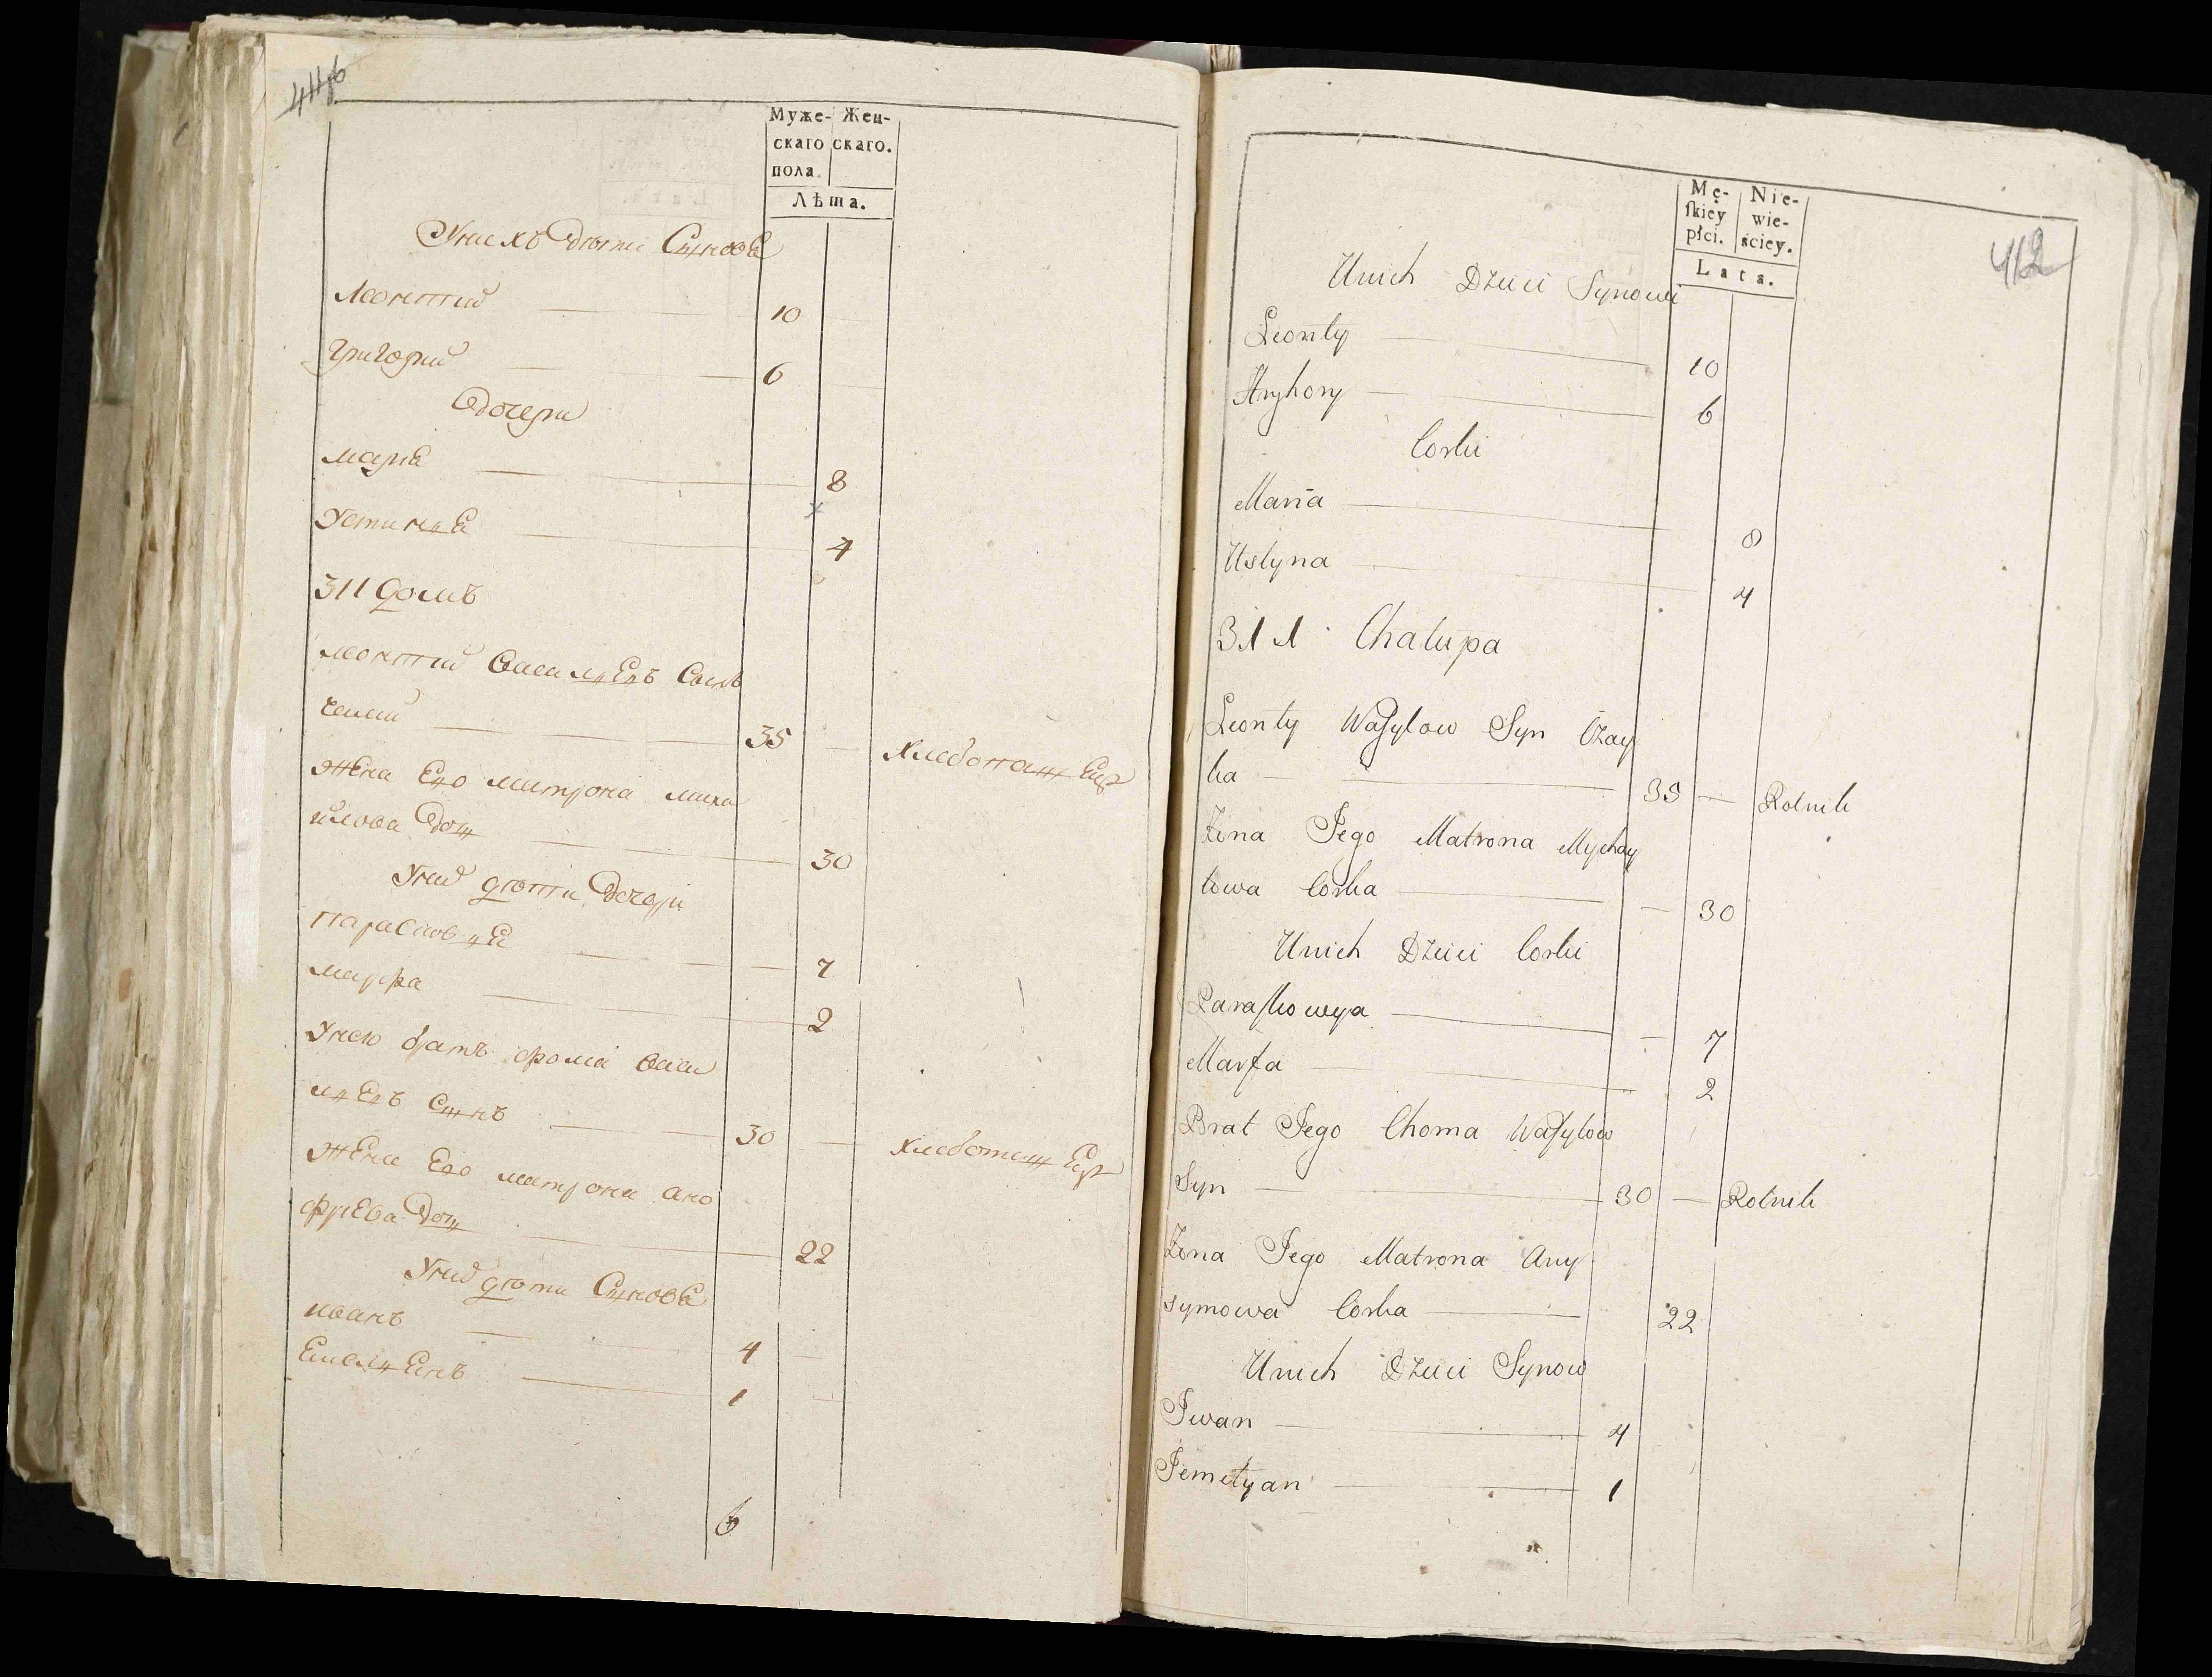 Муже- Жен-
скаго скаго.
пола.
Лѣта.
Унихъ дѣти Сынове
Леонтий 10
Григорий 6
дочери
Мариа 8
Устиниа 4
311 домъ
Леонтий Васильевъ Сынъ
35 хлебопашец
жена Его матрона миха
илова дочь 30
Уних дѣти дочери
Парасковиа 7
марфа 2
Унего братъ фома Васи
льевъ Сынъ 30 хлебопашец
жена Его матрона ано
фриева дочь 22
Уних дѣти Сынове
иванъ 4
Емельянъ 1
6
412
Mę- Nie-
ſkiéy wie-
płci. ściey.
Lata.
Unich Dzieci Synowi
Leonty 10
Hryhory 6
Corki
Maria 8
Ustyna 4
311 Chalupa
Leonty Waſylow Syn Czay
ka 35 Rolnik
Zena Jego Matrona Mychay
lowa Corka 30
Unich Dzieci Corki
Paraſkowya 7
Marfa 2
Brat Jego Choma Waſylow
Syn 30 Rolnik
Zona Jego Matrona Any
symowa Corka 22
Unich Dzieci Synow
Jwan 4
Jemelyan 1